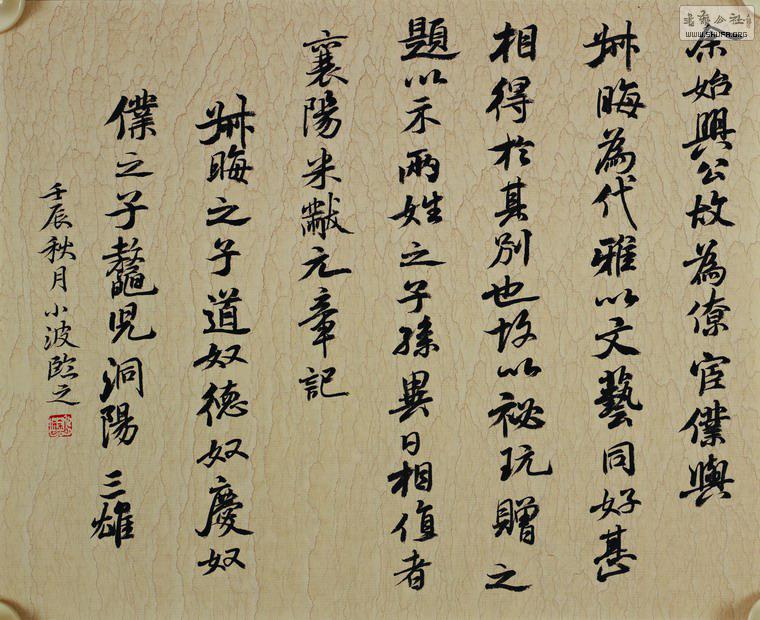 余始興公故為僚宦僕與
叔晦為代雅以文藝同好甚
相得於其別也故以祕玩贈之
題以示兩姓之子孫異日相值者
襄陽米黻元章記
叔晦之子道奴德奴慶奴
僕之子鼇兒洞陽三雄
壬辰秋月小波臨之
書法公社
WWW.SHUFA.ORG